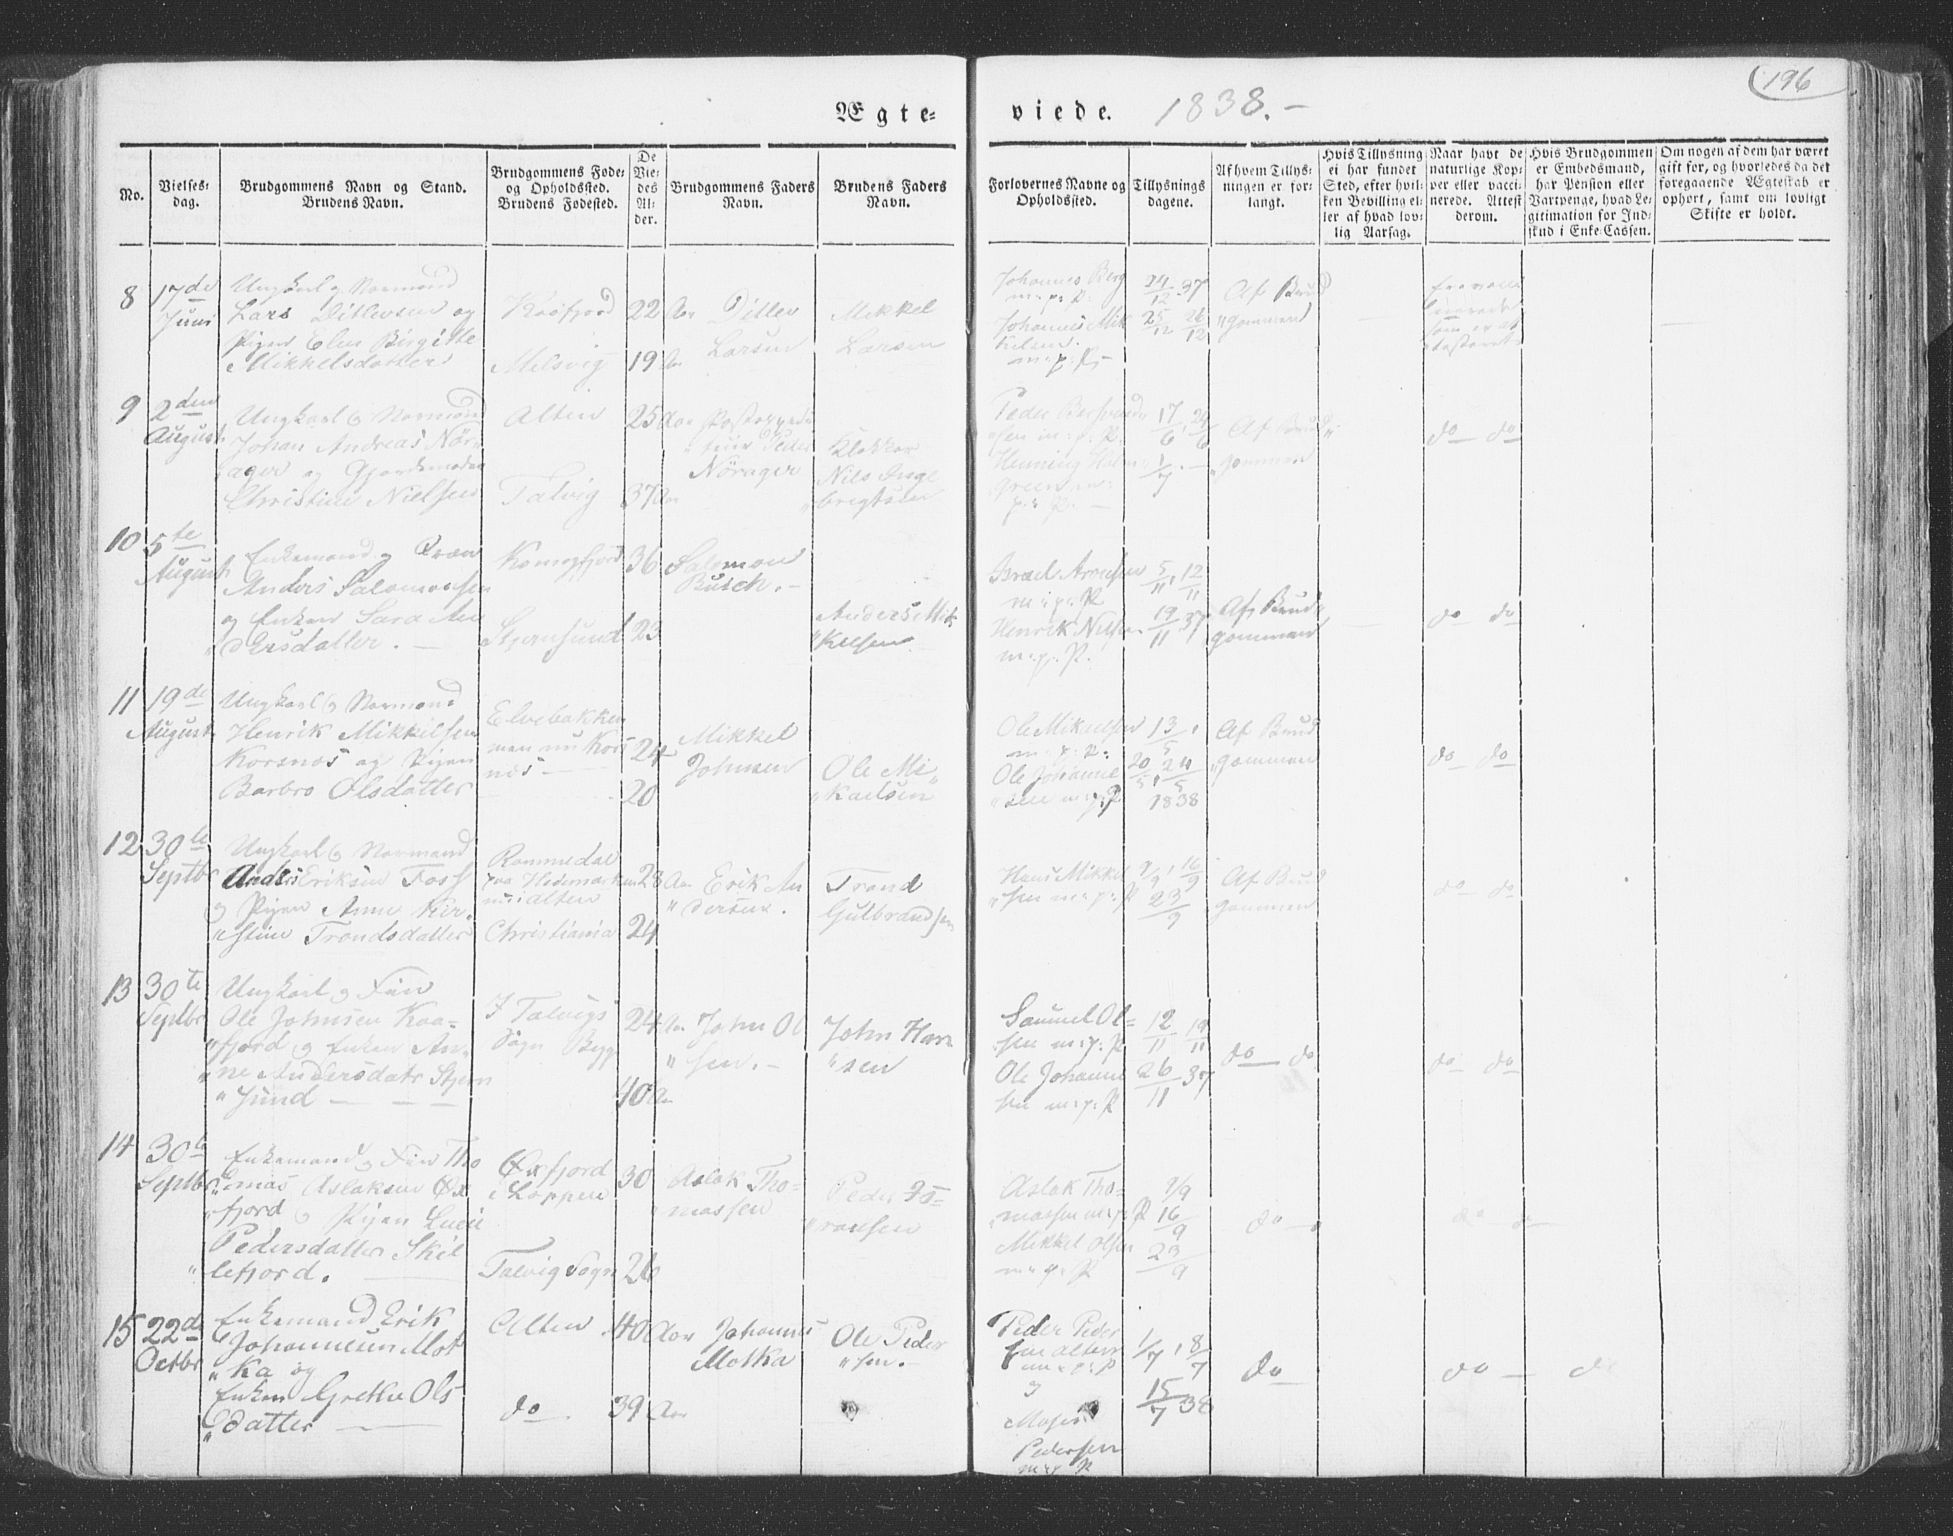 196
Ægte-
viede. 1838.-
No.
Vielses-
dag.
Brudgommens Navn og Stand.
Brudens Navn.
Brudgommens Føde-
og Opholdssted.
Brudens Fødested.
De
Vie-
des
Al-
der.
Brudgommens Faders
Navn.
Brudens Faders
Navn.
Forlovernes Navne og
Opholdssted.
Tillysnings
dagene.
Af hvem Tillys-
ningen er for-
langt.
Hvis Tillysning
ei har fundet
Sted, efter hvil-
ken Bevilling el-
ler af hvad lov-
lig Aarsag.
Naar havt de
naturlige Kop-
per eller vacci-
nerede. Attest
derom.
Hvis Brudgommen
er Embedsmand,
har Pension eller
Vartpenge, hvad Le-
gitimation for Ind-
skud i Enke-Cassen.
Om nogen af dem har været
gift før, og hvorledes da det
foregaaende Ægteskab er
ophørt, samt om lovligt
Skifte er holdt.
8
17de
Juni
Ungkarl og Normand
Lars Ditlevsen og
Pigen Elen Birgitte
Mikkelsdatter
Kaafjord
Melsvig
22 Aar
19 Aar
Ditlev
Larsen
Mikkel
Larsen
Johannes Berg
m: p: P:
Johannes Mik
kelsen
m: p: P:
24/12 37
25/12 26/12
Af Brud
"gommen
9
2den
August
Ungkarl og Normand
Johan Andreas Nör-
ager og Gjordemoder
Christine Nielsen
Alten
Talvig
25 Aar
37 Aar
Peder
Nörager
Klokker
Nils Inge
"brigtsen
Peder
sen m: p: P.
Henning Holm
green m:
p: P.
17/6, 24/6
1/7
Af Brud"
"gommen
do do
10
5te
August
Enkemand og Qvæn
Anders Salomonsen
og Enken Sara An
"dersdatter. -
Komagfjord
Stjernsund
36
23
Salomon
Busch. -
Anders Mik
"kelsen
Israel Arnesen
m: p: P
Henrik Nilsen
m: p: P.
5/11, 12/11
19/11 37
Af Brud
gommen
do do
11
19de
August
Ungkarl og Normand
Henrik Mikkelsen
Korsnæs og Pigen
Barbro Olsdatter
Elvebakken
men nu Kors
næs
24
20
Mikkel
Johnsen
Ole Mi
"kaelsen
Ole Mikaelsen
m: p: P:
Ole Johanne
"sen m: p: P
13/5,
20/5, 24/5
1838
Af Brud
"gommen
do do
12
30te
Septbr
Ungkarl og Normand
Anders Eriksen Foss
og Pigen Anne Kir-
"stine Trondsdatter
Rommedal
paa Hedemarken
nu i Alten
Christiania
28 Aar
24
Erik An
"dersen.
Trond
Gulbrandsen
Hans Mikkel
"sen m: p: P
9/9, 16/9
23/9
Af Brud
gommen
do do
13
30te
Septbr
Ungkarl og Fin
Ole Johnsen Kaa-
"fjord og Enken An-
"ne Andersdatr Stjern
"sund
I Talvigs
Sogn Byg
24 Aar
40 Aar
John Ol
"sen. -
John Han
"sen
Samuel Ol=
"sen m: p: P
Ole Johanne
sen m: p: P
12/11, 19/11
26/11 37
do do
do do
14
30te
Septbr
Enkemand og Fin Tho
"mas Aslaksen Øx
"fjord og Pigen Lucie
Pedersdatter Skil
"lefjord.
Øxfjord
i Loppen
Talvig Sogn
30
26
Aslak Tho-
"massen
Peder
Aslak Tho-
"massen m: p: P
Mikkel Olsen
m: p: P
9/9
16/9
23/9
do
do do
15
22de
Octbr
Enkemand Erik
Johannesen Mot
"ka og
Enken Grethe Ols
"datter
Alten
do
40 Aar
39 Aar
Johannes
Motka
Ole Peder
"sen. -
Peder Peder
sen
m: p: P
Moses
Pedersen
m: p: P
1/7, 8/7
15/7 38
do
do
do